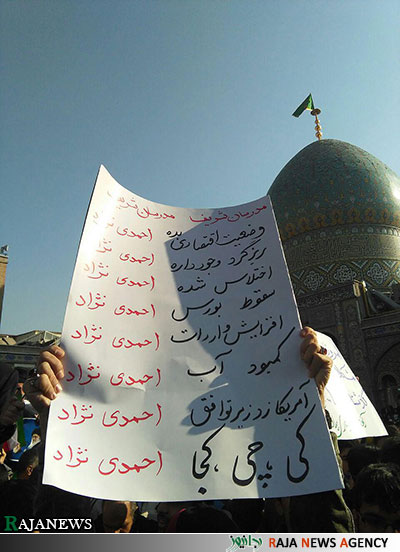 مدرسان شریف مدرسان شریف
وضعیت اقتصادی بده احمدی نژاد
ریزگرد وجود داره احمدی نژاد
اختلاس شده احمدی نژاد
سقوط بورس احمدی نژاد
افزایش واردات احمدی نژاد
کمبود آب احمدی نژاد
آمریکا زد زیر توافق احمدی نژاد
کی ،چی ،کجا احمدی نژاد
RAJANEWS
RAJA NEWS AGENCY